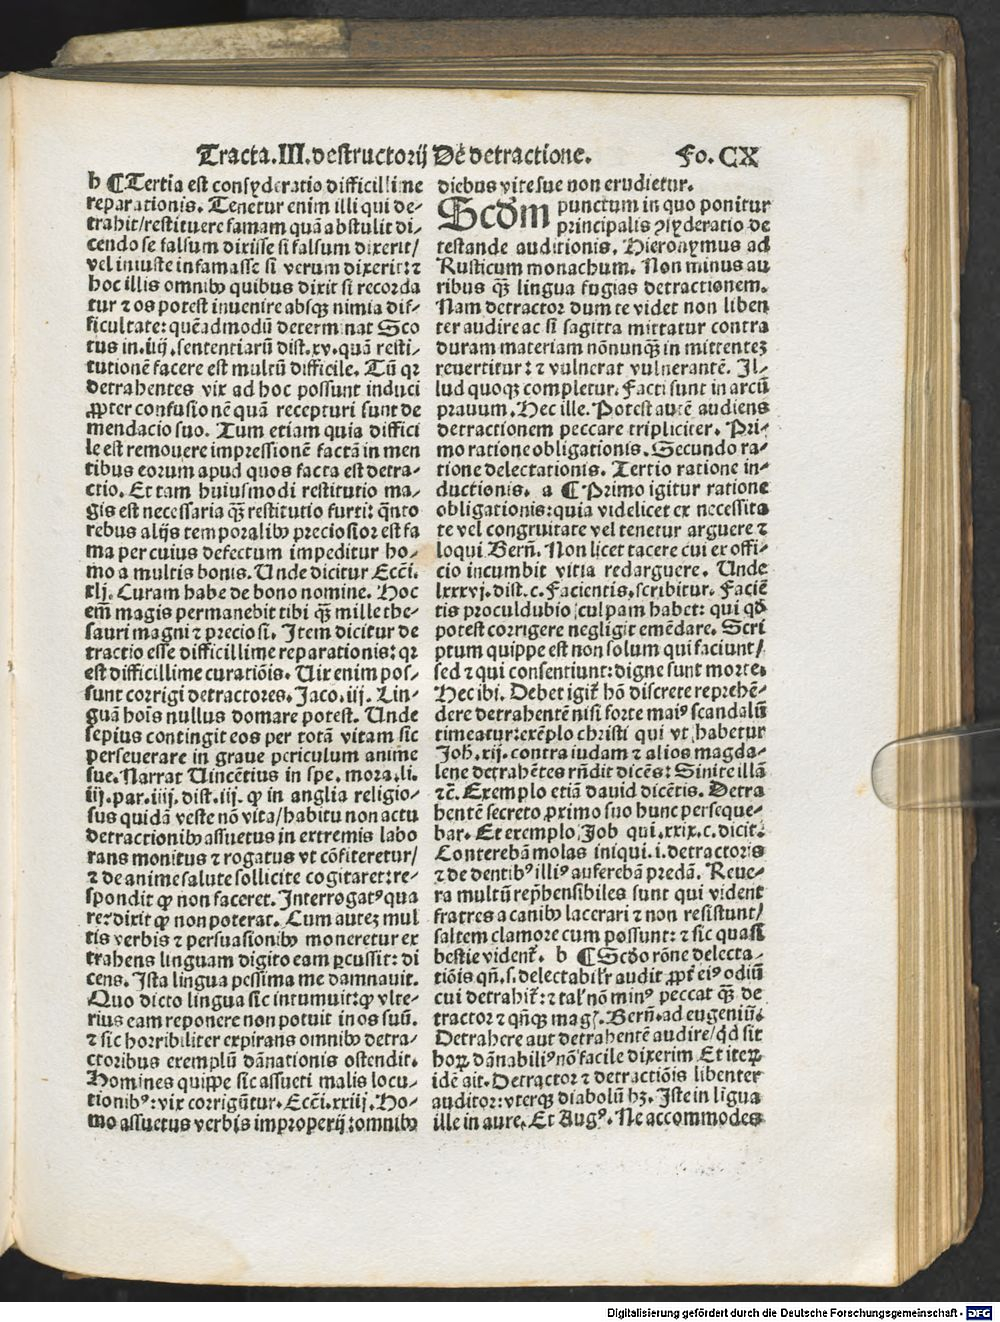 Tracta.III.destructorij De detractione. Fo. CX
b ¶ Tertia est consyderatio difficillime
reparationis. Tenetur enim illi qui de-
trahit/restituere famam quā abstulit di-
cendo se falsum dixisse si falsum dixerit/
vel iniuste infamasse si verum dixerit: ⁊
hoc illis omnibꝰ quibus dixit si recorda
tur ⁊ eos potest inuenire absqꝫ nimia dif-
ficultate: quēadmodū determinat Sco
tus in.iiij.sententiarū dist.xv.quā resti-
tutionē facere est multū difficile. Tū qꝛ
detrahentes vix ad hoc possunt induci
ꝓpter confusionē quā recepturi sunt de
mendacio suo. Tum etiam quia diffici
le est remouere impressionē factā in men
tibus eorum apud quos facta est detra-
ctio. Et tam huiusmodi restitutio ma-
gis est necessaria qꝫ̄ restitutio furti: q̄nto
rebus alijs temporalibꝰ preciosior est fa
ma per cuius defectum impeditur ho-
mo a multis bonis. Unde dicitur Ecci.
xlj. Curam habe de bono nomine. Hoc
em̄ magis permanebit tibi qꝫ̄ mille the-
sauri magni ⁊ preciosi. Item dicitur de
tractio esse difficillime reparationis: qꝛ
est difficillime curatiōis. Uix enim pos-
sunt corrigi detractores. Jaco.iij. Lin-
guā hoīs nullus domare potest. Unde
sepius contingit eos per totā vitam sic
perseuerare in graue periculum anime
sue. Narrat Uincētius in spe. mora.li.
iij.par.iiij.dist.iij. ꝙ in anglia religio-
sus quidā veste nō vita/habitu non actu
detractionibꝰ assuetus in extremis labo
rans monitus ⁊ rogatus vt cōfiteretur/
⁊ de anime salute sollicite cogitaret: re-
spondit ꝙ non faceret. Interrogatꝰ qua
re: dixit ꝙ non poterat. Cum auteꝫ mul
tis verbis ⁊ persuasionibꝰ moneretur ex
trahens linguam digito eam ꝑcussit: di
cens. Ista lingua pessima me damnauit.
Quo dicto lingua sic intumuit: ꝙ vlte-
rius eam reponere non potuit in os suū.
⁊ sic horribiliter expirans omnibꝰ detra-
ctoribus exemplū dānationis ostendit.
Homines quippe sic assueti malis locu-
tionibꝰ: vix corrigūtur. Ecci.xxiij. Ho-
mo assuetus verbis improperij: omnibꝰ
diebus vite sue non erudietur.
Scd̄m punctum in quo ponitur
principalis ꝯsyderatio de
testande auditionis. Hieronymus ad
Rusticum monachum. Non minus au
ribus qꝫ̄ lingua fugias detractionem.
Nam detractor dum te videt non liben
ter audire ac si sagitta mittatur contra
duram materiam nōnunqꝫ̄ in mittenteꝫ
reuertitur: ⁊ vulnerat vulnerantē. Il-
lud quoqꝫ completur. Facti sunt in arcū
prauum. Hec ille. Potest autē audiens
detractionem peccare tripliciter. Pri-
mo ratione obligationis. Secundo ra-
tione delectationis. Tertio ratione in-
ductionis. a ¶ Primo igitur ratione
obligationis: quia videlicet ex necessita
te vel congruitate vel tenetur arguere ⁊
loqui Berñ. Non licet tacere cui ex offi-
cio incumbit vitia redarguere. Unde
lxxxvj.dist.c. Facientis.scribitur. Faciē
tis proculdubio culpam habet: qui qd̄
potest corrigere negligit emēdare. Scri
ptum quippe est non solum qui faciunt/
sed ⁊ qui consentiunt: digne sunt morte.
Hec ibi. Debet igit̃ hō discrete reprehē-
dere detrahentē nisi forte maiꝰ scandalū
timeatur: exēplo christi qui vt habetur
Joh̄.xij. contra iudam ⁊ alios magda-
lene detrahētes rñdit dicēs: Sinite illā
⁊c̄. Exemplo etiā dauid dicētis. Detra
hentē secreto ꝓximo suo hunc perseque-
bar. Et exemplo Job qui.xxix.c.dicit.
Conterebā molas iniqui.i.detractoris
⁊ de dentibꝰ illiꝰ auferebā predā. Reue-
ra multū rep̄hensibiles sunt qui vident
fratres a canibꝰ lacerari ⁊ non resistunt/
saltem clamore cum possunt: ⁊ sic quasi
bestie vident̃. b ¶ Scd̄o rōne delecta-
tiōis qñ.s.delectabil'r audit ꝓpt̃ eiꝰ odiū
cui detrahit̃: ⁊ tal' nō minꝰ peccat qꝫ̄ de
tractor ⁊ qñqꝫ magꝭ. Berñ. ad eugeniū.
Detrahere aut detrahentē audire/qd̄ sit
hoꝝ dānabiliꝰ nō facile dixerim Et iteꝝ
idē ait. Detractor ⁊ detractiōis libenter
auditor: vterqꝫ diabolū hꝫ. Iste in līgua
ille in aure. Et Augꝰ. Ne accommodes
Digitalisierung gefördert durch die Deutsche Forschungsgemeinschaft - DFG